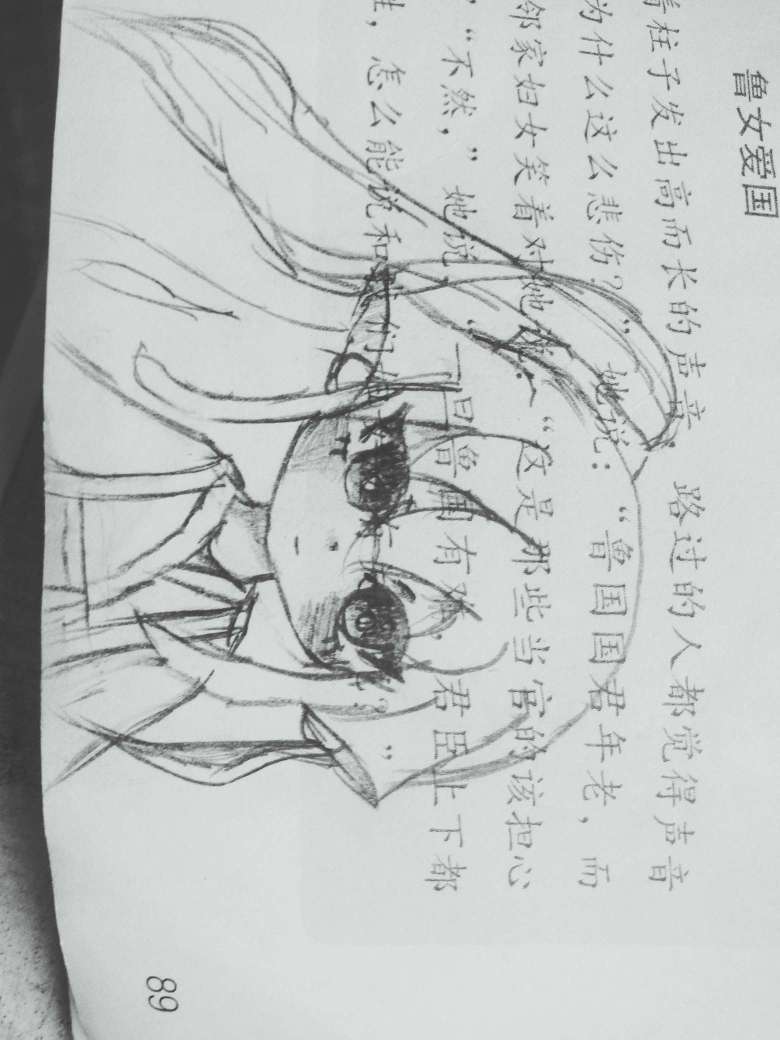 鲁女爱国
着柱子发出高而长的声音，路过的人都觉得声音
为什么这么悲伤？”她说：“鲁国国君年老，而
邻家妇女笑着对她说：“这是那些当官的该担心
“不然，”她说，“一旦鲁国有难，君臣上下都
，怎么能说和我们
？”
89